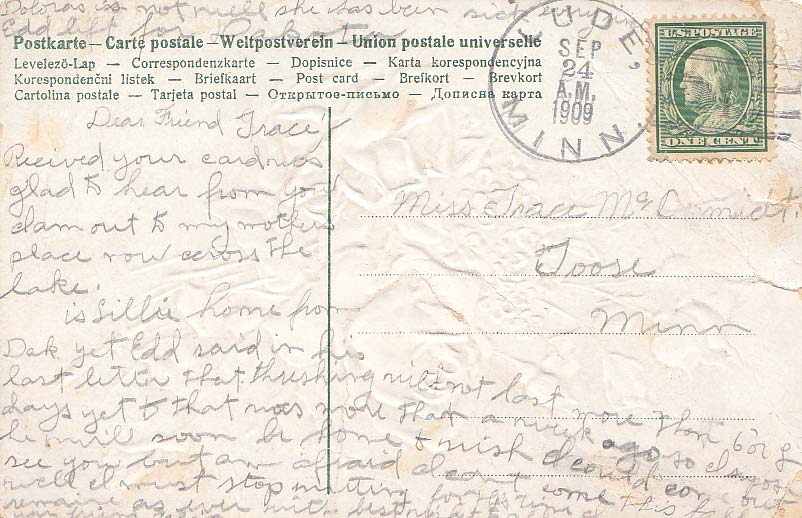 Doloras is not well she has been sick
Edd left for Dakota
Postkarte – Carte postale – Weltpostverein – Union postale universelle
Levelező-Lap — Correspondenzkarte — Dopisnice — Karta korespondencyjna
Korespondenční lístek — Briefkaart — Post card — Brefkort — Brevkort
Cartolina postale — Tarjeta postal — Открытое-письмо — Дописна карта
UDE,
SEP
24
A.M.
1909
MINN.
U.S. POSTAGE
ONE CENT
Dear Friend Trace
Recived your card was
glad to hear from you
I am out to my mothers
place now across the
lake.
is Lillie home from
Dak yet Edd said in his
last letter that thrushing will not last more than 6 or 8
days yet & that was more than a week ago so I supose
he will soon be home & wish I could come out
see you but am afraid I cant come this fall
well I must stop writting for this time
remaine as ever with best
Miss Trace McCormick
Toose
Minn